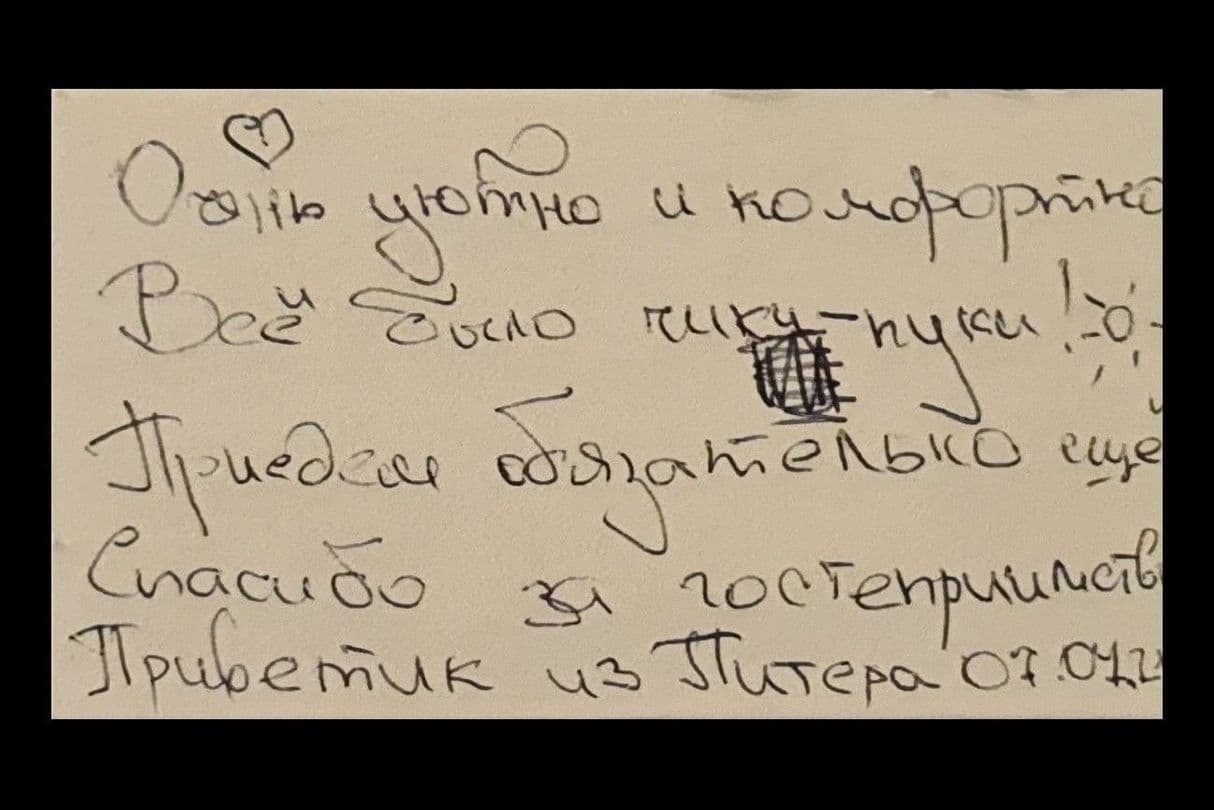 Очень уютно и комфортно
Всё было чики-пуки!
Приедем обязательно ещё
Спасибо за гостеприимств
Приветик из Питера 07.01.2